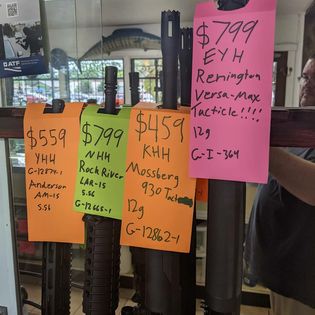 ATF
$559
YHH
Anderson
AM-15
5.56
$799
NHH
Rock River
LAR-15
5.56
G-12665-1
$459
KHH
Mossberg
930
12g
G-12862-1
$799
EYH
Remington
Versa-Max
Tacticle!!!!
12g
G-I-364